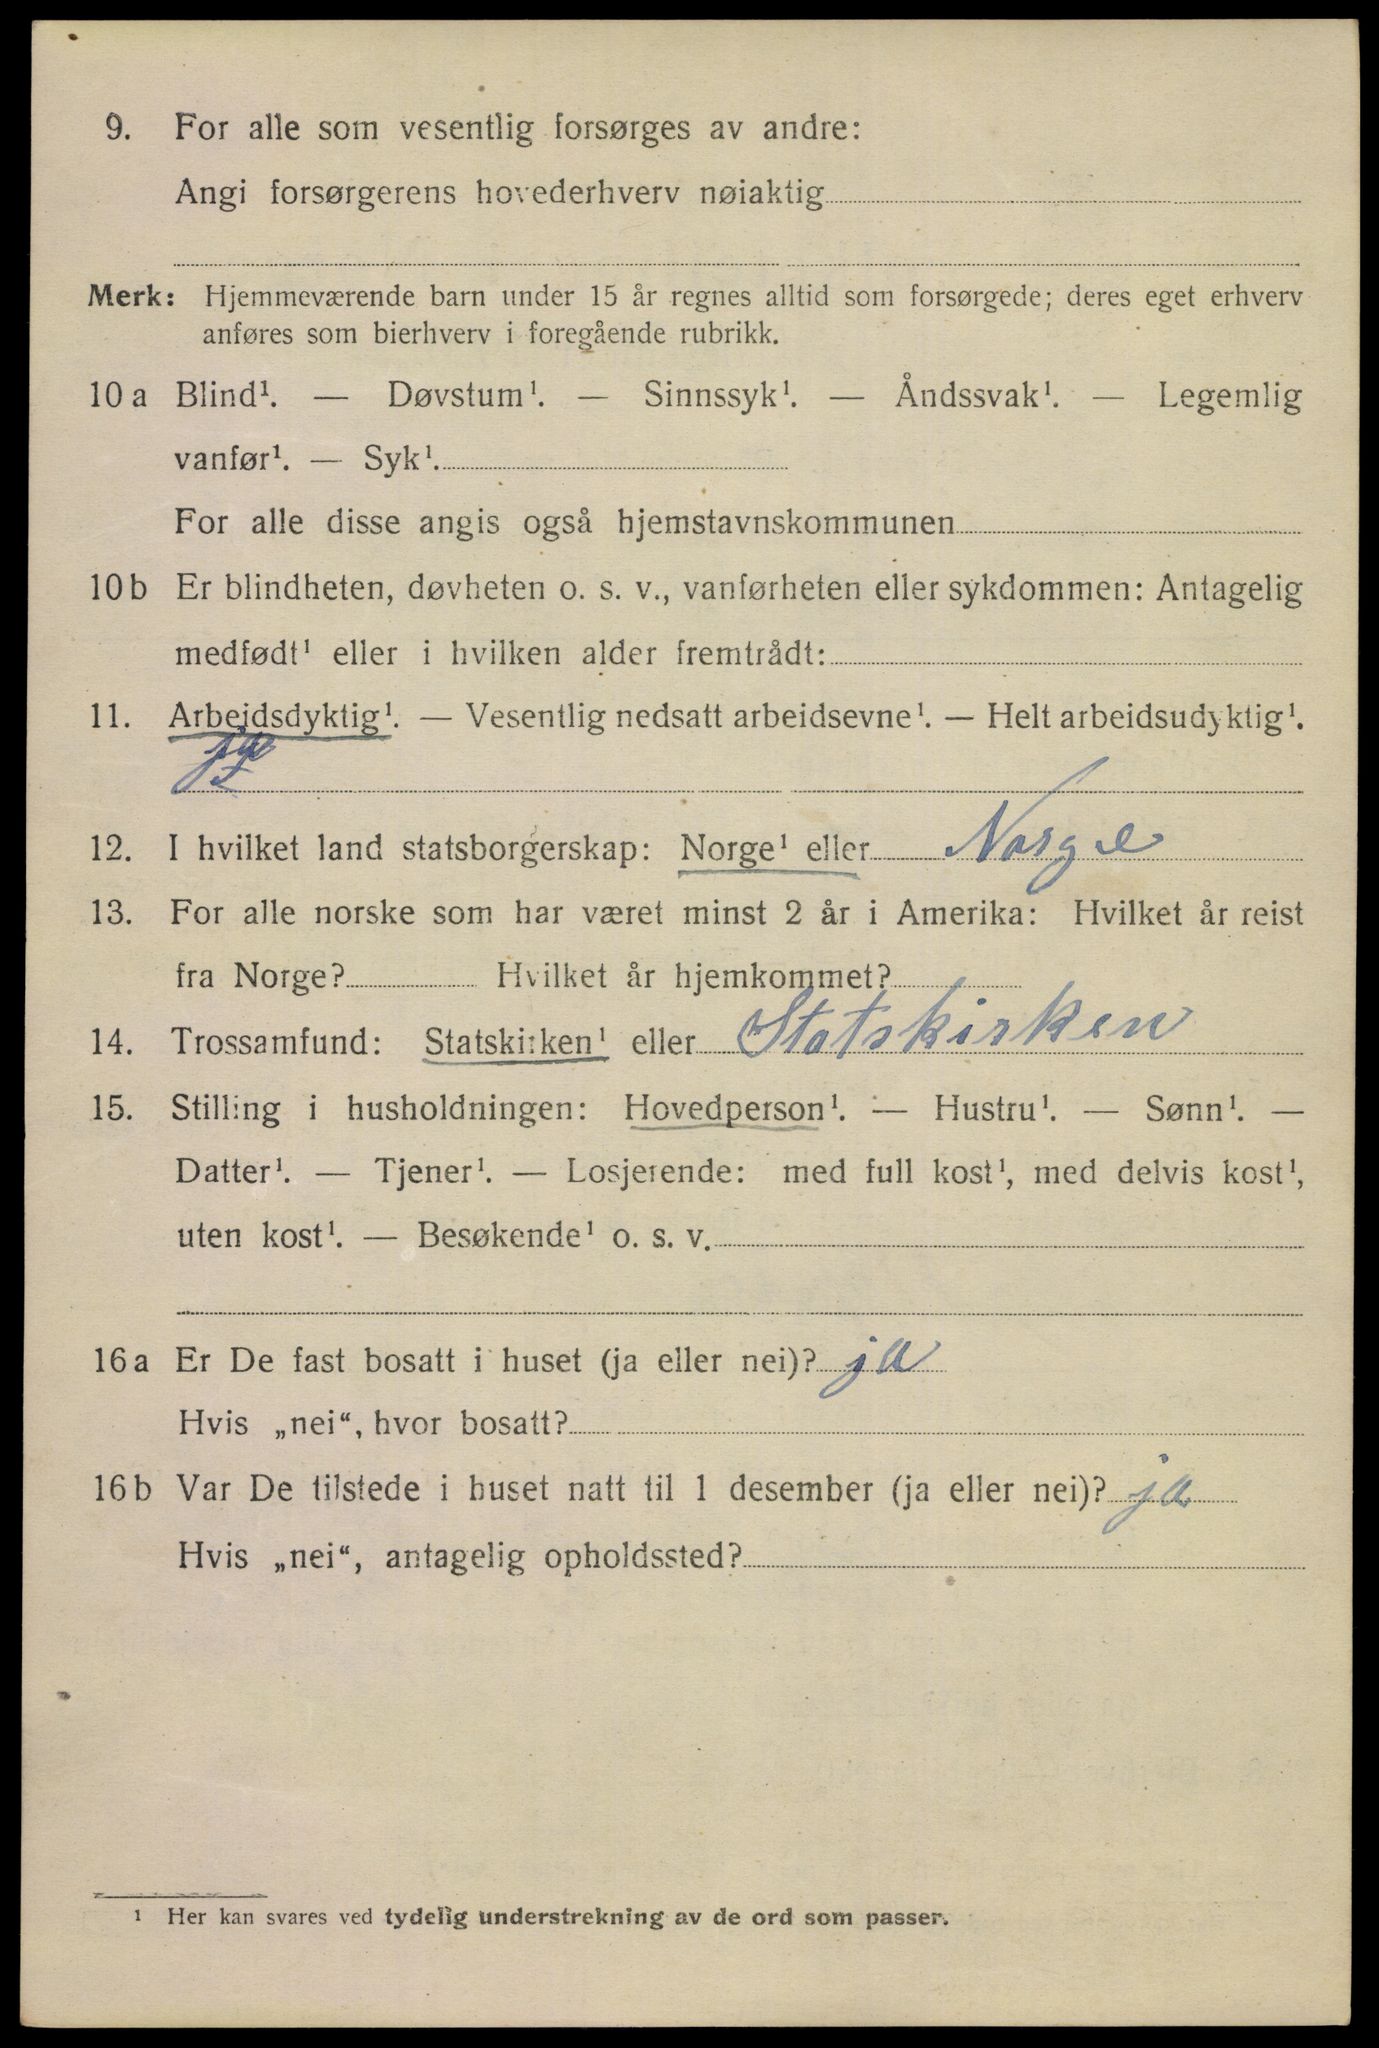 9. For alle som vesentlig forsørges av andre:
Angi forsørgerens hovederhverv nøiaktig
Merk: Hjemmeværende barn under 15 år regnes alltid som forsørgede; deres eget erhverv
anføres som bierhverv i foregående rubrikk.
10 a Blind¹. — Døvstum¹. — Sinnssyk¹. — Åndssvak¹. — Legemlig
vanfør¹. — Syk¹.
For alle disse angis også hjemstavnskommunen
10 b Er blindheten, døvheten o. s. v., vanførheten eller sykdommen: Antagelig
medfødt¹ eller i hvilken alder fremtrådt:
11. Arbeidsdyktig¹. — Vesentlig nedsatt arbeidsevne¹. — Helt arbeidsudyktig¹.
ja
12. I hvilket land statsborgerskap: Norge¹ eller Norge
13. For alle norske som har været minst 2 år i Amerika: Hvilket år reist
fra Norge? Hvilket år hjemkommet?
14. Trossamfund: Statskirken¹ eller Statskirken
15. Stilling i husholdningen: Hovedperson¹. — Hustru¹. — Sønn¹. —
Datter¹. — Tjener¹. — Losjerende: med full kost¹, med delvis kost¹,
uten kost¹. — Besøkende¹ o. s. v.
16 a Er De fast bosatt i huset (ja eller nei)? ja
Hvis „nei“, hvor bosatt?
16 b Var De tilstede i huset natt til 1 desember (ja eller nei)? ja
Hvis „nei“, antagelig opholdssted?
¹ Her kan svares ved tydelig understrekning av de ord som passer.